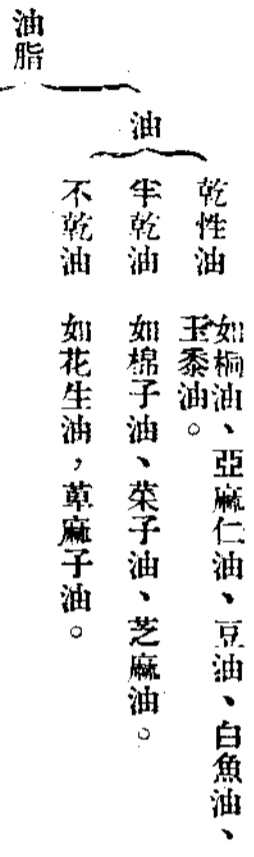 油脂
油
乾性油
如桐油、亞麻仁油、豆油、白魚油、
玉黍油。
半乾油
如棉子油、菜子油、芝麻油。
不乾油
如花生油，萆麻子油。